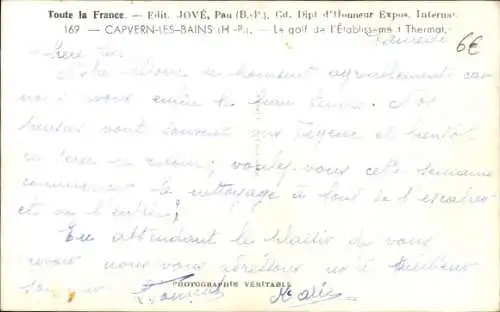 Toute la France. — Edit. JOVÉ, Pau (B.-P.). Gd. Dipl d'Honneur Expos. Internat.
169 — CAPVERN-LES-BAINS (H.-P.). — Le golf de l'Établissement Thermal
Samedi
6€
Notre séjour se agréablement car
nous avons le beau temps. Nos
vont souvent aux et bientôt
ce sera le retour; voulez-vous cette semaine
commencer le nettoyage à fond de l'escalier
et de l'entrée;
En attendant le plaisir de vous
revoir nous vous adressons notre meilleur
PHOTOGRAPHIE VÉRITABLE